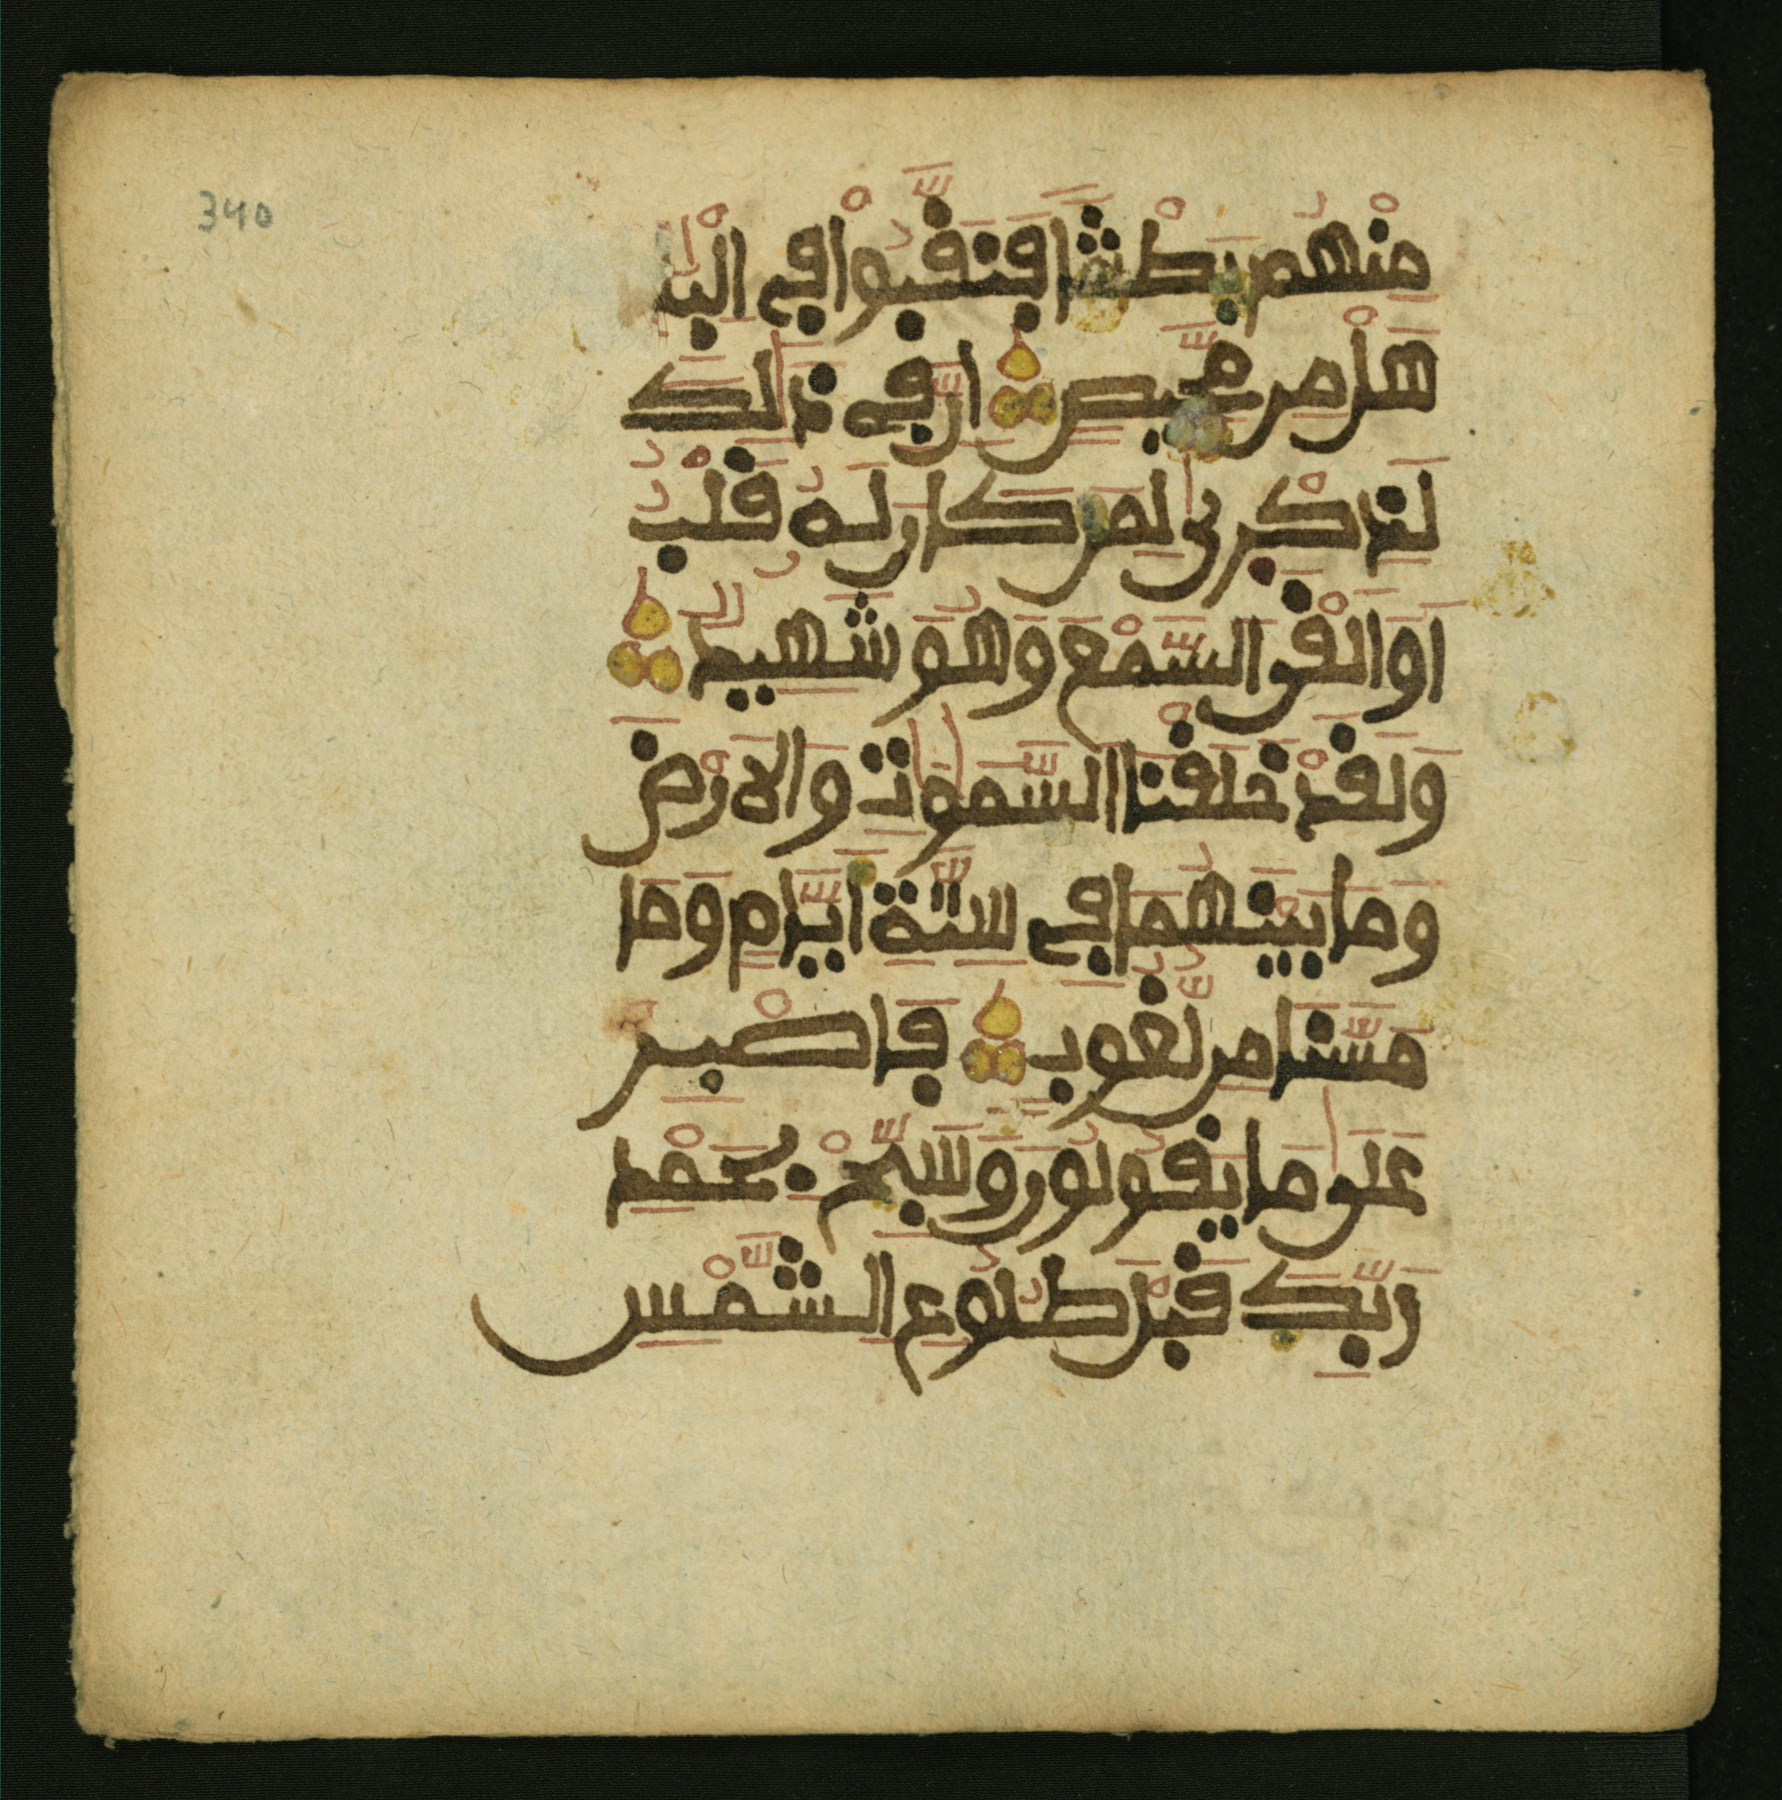 340
مِنْهُم بَطْشًا فَنَقَّبُوْا فِي الْبِلَٰ
هَلْ مِن مَّحِيصٍ اِنَّ فِي ذَٰلِكَ
لَذِكْرِىٰ لِمَن كَانَ لَهُۥ قَلْبٌ
اَوَ اَلْقَى السَّمْعَ وَهُوَ شَهِيدٌ
وَلَقَدْ خَلَقْنَا السَّمَٰوَٰتِ وَالاَرْضَ
وَمَا بَيْنَهُمَا فِي سِتَّةِ اَيَّامٍ وَمَا
مَسَّنَا مِن لُّغُوبٍ فَاصْبِرْ
عَلَىٰ مَا يَقُولُونَ وَسَبِّحْ بِحَمْدِ
رَبِّكَ قَبْلَ طُلُوعِ الشَّمْسِ